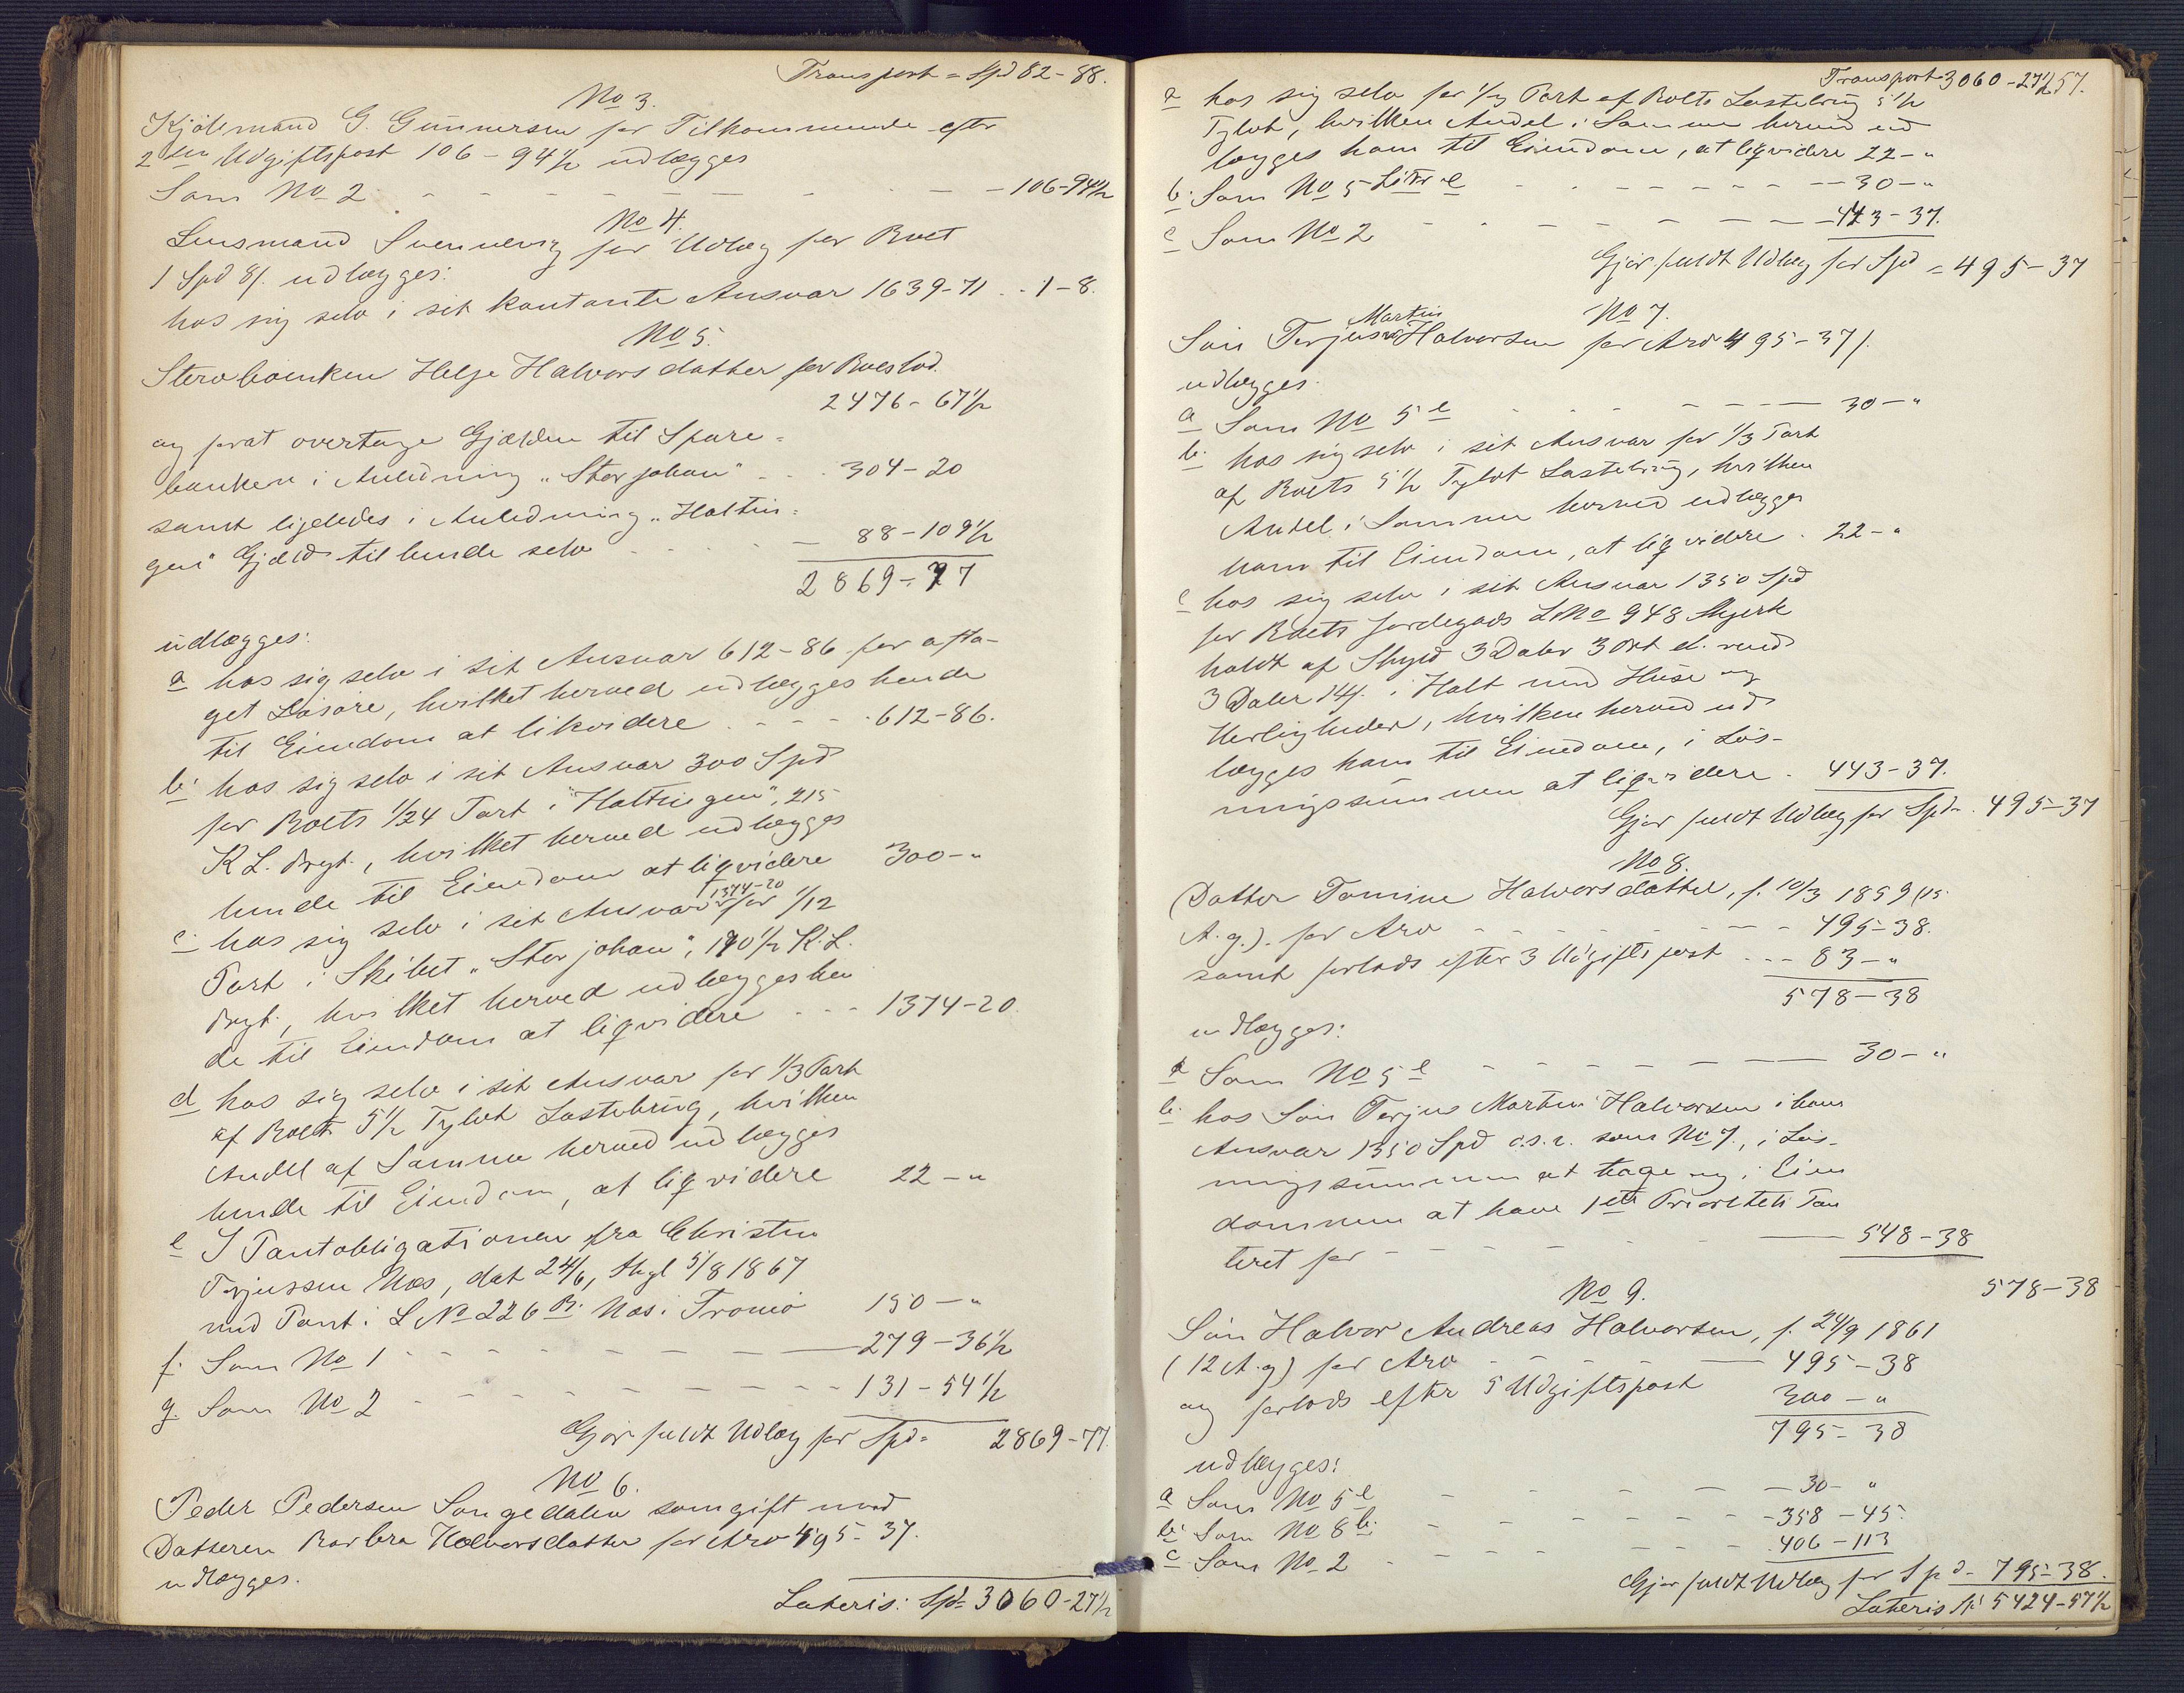 Transport = Spd 82-88.
No 3.
Kjöbmand G. Gunnersen for Tilkommende efter
2den Udgiftspost 106-94½ udlægges
Som No 2 - - - - - 106-94½
No 4.
Lensmand Svennevig for Udlæg for Boet
1 Spd 8/. udlægges:
hos sig selv i sit kontante Ansvar 1639-71 .. 1-8.
No 5.
Stervboenken Helje Halvorsdatter for Boeslod.
2476-67½
og forat overtage Gjælden til Spare=
banken i Anledning "Storjohan" - . . 304-20
samt ligeledes i Anledning "Holtin=
gen" Gjæld til hende selv - - - - 88-109½
2869-77
udlægges:
a hos sig selv i sit Ansvar 612-86 for afta-
get Løsøre, hvilket herved udlægges hende
til Eiendom at likvidere - - - 612-86.
b. hos sig selv i sit Ansvar 300 Spd
for Boets 1/24 Part i "Holtingen", 215
K.L. drgt., hvilket herved udlægges
hende til Eiendom at liqvidere 300-"
1374-20
c. hos sig selv i sit Ansvar for 1/12
Part i Skibet "Storjohan", 170½ K.L.
drgt., hvilket herved udlægges hen
de til Eiendom at liqvidere - - - 1374-20.
d hos sig selv i sit Ansvar for 1/3 Part
af Boets 5½ Tylvt Lastebrug, hvilken
Andel af Samme herved udlægges
hende til Eiendom, at liqvidere 22-"
e I Pantobligationen fra Christen
Terjussen Næs, dat 24/6, thgl 5/8 1867
med Pant i L No 226 B. Næs i Tromö 150-"
f. Som No 1 - - - - - 279-36½
g. Som No 2 - - - - - 131-54½
Gjør fuldt Udlæg for Spd= 2869-77.
No 6.
Peder Pedersen Songedalen som gift med
Datteren Barbra Halvorsdatter for Arv 495-37.
udlægges.
Lateris: Spd= 3060-27½
Transport 3060-27½
a hos sig selv for 1/3 Part af Boets Lastebrug 5½
Tylvt, hvilken Andel i Samme herved ud
lægges ham til Eiendom, at liqvidere 22-"
b. Som No 5 Littr e - - - - - 30-"
c Som No 2 - - - - - 443-37.
Gjør fuldt Udlæg for Spd = 495-37
No 7.
Martin
Søn Terjus Halvorsen for Arv 495-37/.
udlægges.
a Som No 5 e - - - - - 30-"
b. hos sig selv i sit Ansvar for 1/3 Part
af Boets 5½ Tylvt Lastebrug, hvilken
Andel i Samme herved udlægges
ham til Eiendom, at liqvidere . 22-"
c hos sig selv i sit Ansvar 1350 Spd
for Boets Jordegods L No 948
holdt af Skyld 3 Daler 3 Ort
3 Daler 14/. i Holt med Huse og
Herligheder, hvilken herved ud
lægges ham til Eiendom, i Løs-
ningssummen at liqvidere . 443-37.
Gjør fuldt Udlæg for Spd= 495-37
No 8.
Datter Tomine Halvorsdatter, f. 10/3 1859 (15
A. g.). for Arv - - - - - 495-38.
samt forlods efter 3 Udgiftspost - - - 83-"
578-38
udlægges:
a Som No 5 e - - - - - 30-"
b. hos Søn Terjus Martin Halvorsen i hans
Ansvar 1350 Spd o.s.v. som No 7., i Løs-
ningssummen at tage og i Eien
dommen at have 1ste Prioritets Pan
teret for - - - - - 548-38
578-38
No 9.
Søn Halvor Andreas Halvorsen, f. 24/9 1861
(12 A. g) for Arv - - - - 495-38
og forlods efter 5 Udgiftspost 300-"
795-38
udlægges:
a Som No 5 e - - - - - 30-"
b. Som No 8 b. - - - - - 358-45.
c Som No 2 - - - - - 406-113
Gjør fuldt Udlæg for Spd= 795-38.
Lateris Sp: 5424-57½